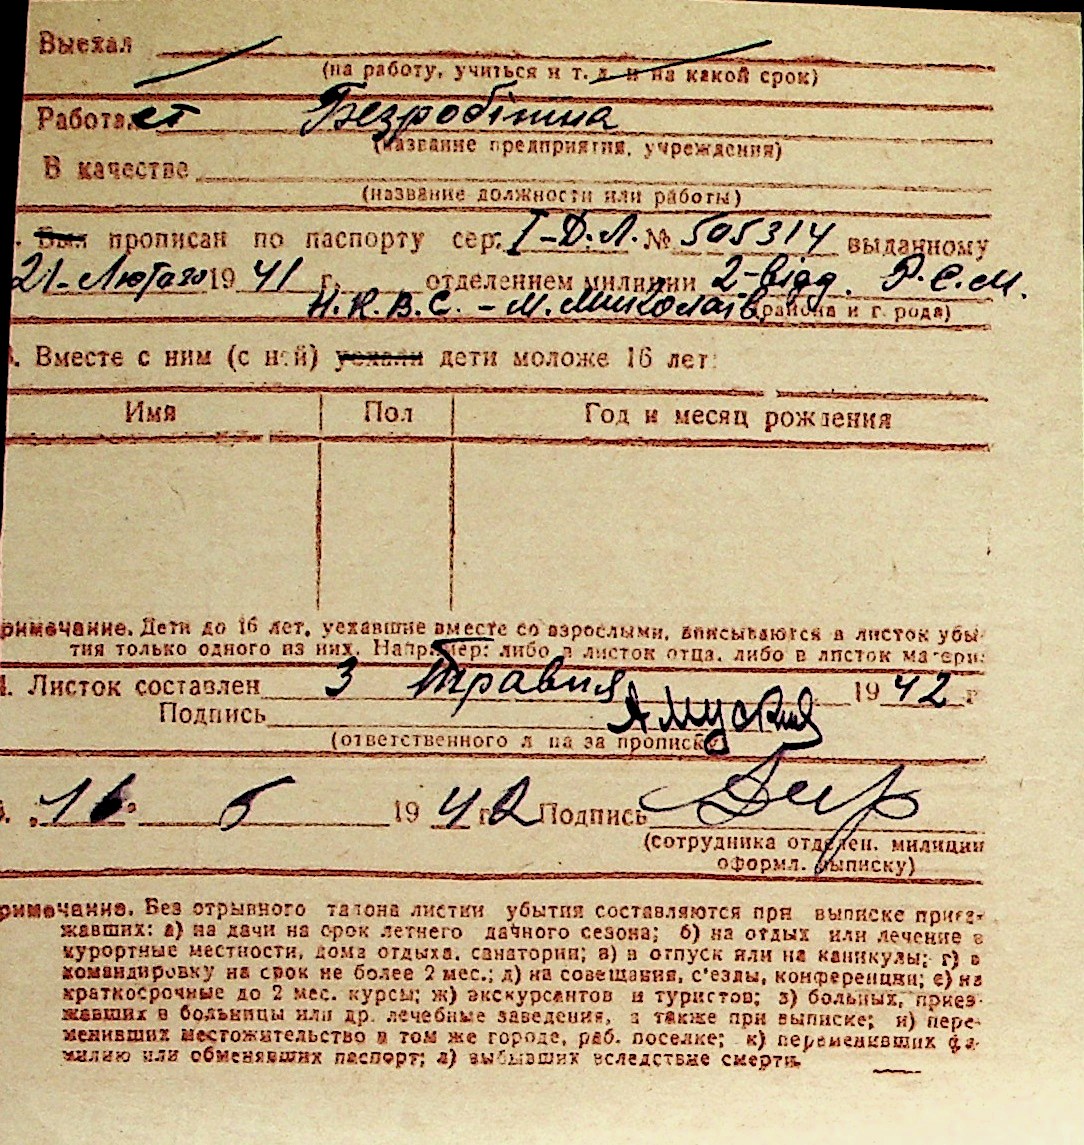 Выехал
(на работу, учиться и т. д. и на какой срок)
Работает Безробітна
(название предприятия, учреждения)
В качестве
(название должности или работы)
Был прописан по паспорту сер. I-Д.Л. № 505314 выданному
21-Лютого 1941 г. отделением милиции 2-відд. Р.С.М.
Н.К.В.С. - М. Миколаїв. (района и г рода)
. Вместе с ним (с ней) уехали дети моложе 16 лет:
Имя Пол Год и месяц рождения
римечание. Дети до 16 лет, уехавшие вместе со взрослыми, вписываются в листок убы-
тия только одного из них. Например: либо в листок отца, либо в листок матери.
. Листок составлен 3 Травня 1942 г
Подпись
(ответственного л ца за прописку)
. 16 5 1942 г. Подпись
(сотрудника отделен. милиции
оформл. выписку)
римечание. Без отрывного талона листки убытия составляются при выписке приез-
жавших: а) на дачи на срок летнего дачного сезона; б) на отдых или лечение в
курортные местности, дома отдыха, санатории; в) в отпуск или на каникулы; г) в
командировку на срок не более 2 мес.; д) на совещания, с'езды, конференции; е) на
краткосрочные до 2 мес. курсы; ж) экскурсантов и туристов; з) больных, приез-
жавших в больницы или др. лечебные заведения, а также при выписке; и) пере-
менивших местожительство в том же городе, раб. поселке; к) переменивших фа-
милию или обменявших паспорт; л) выбывших вследствие смерти.